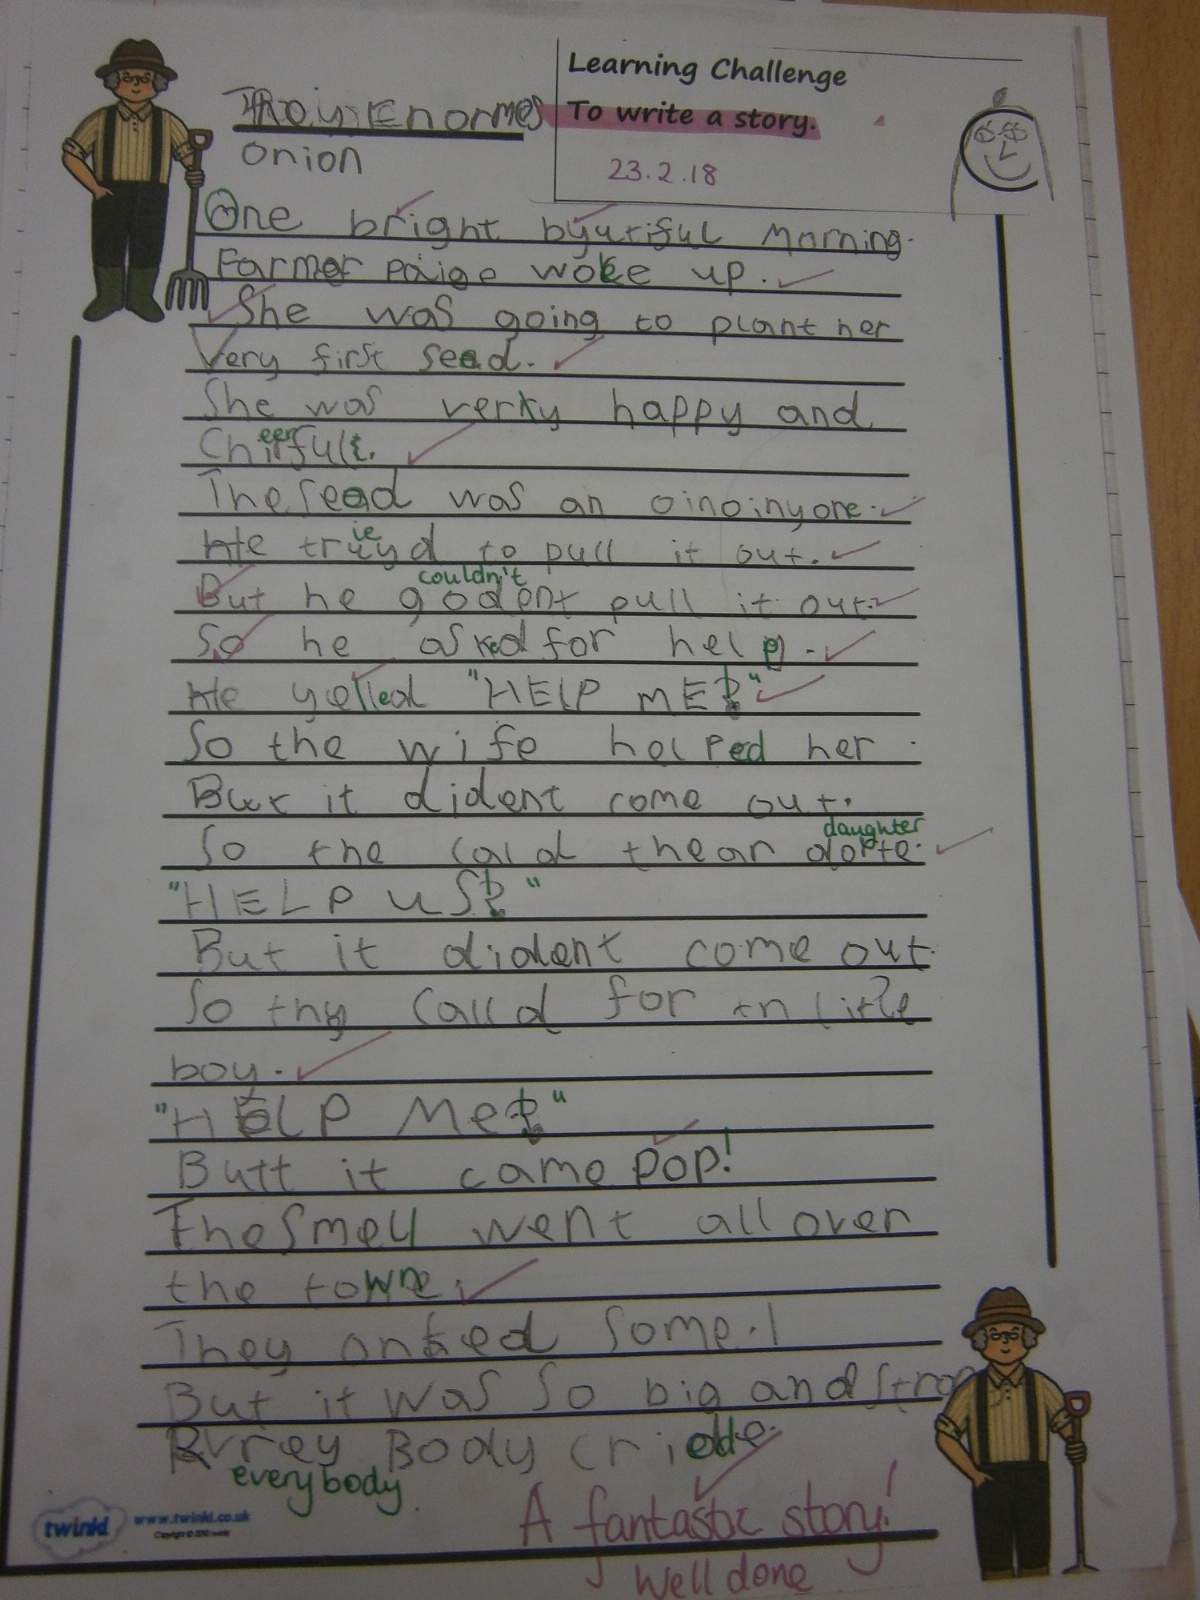 Learning Challenge
To write a story.
23.2.18
The Enormes
onion
One bright byutiful morning.
Farmer paige woke up.
She was going to plant her
Very first seed.
She was verky happy and
Cheerful.
The seed was an oinoinyone.
He tried to pull it out.
couldn't
But he godent pull it out.
So he asked for help.
He yelled "HELP ME!"
So the wife helped her.
But it dident come out.
daughter
So the cald thear dorte.
"HELP US!"
But it dident come out.
So thy calld for litle
boy.
"HELP Me!"
Butt it came pop!
The smell went all over
the towne.
They some.
But it was so big and
Body cried
everybody
A fantastic story!
Well done
twinkl
www.twinkl.co.uk